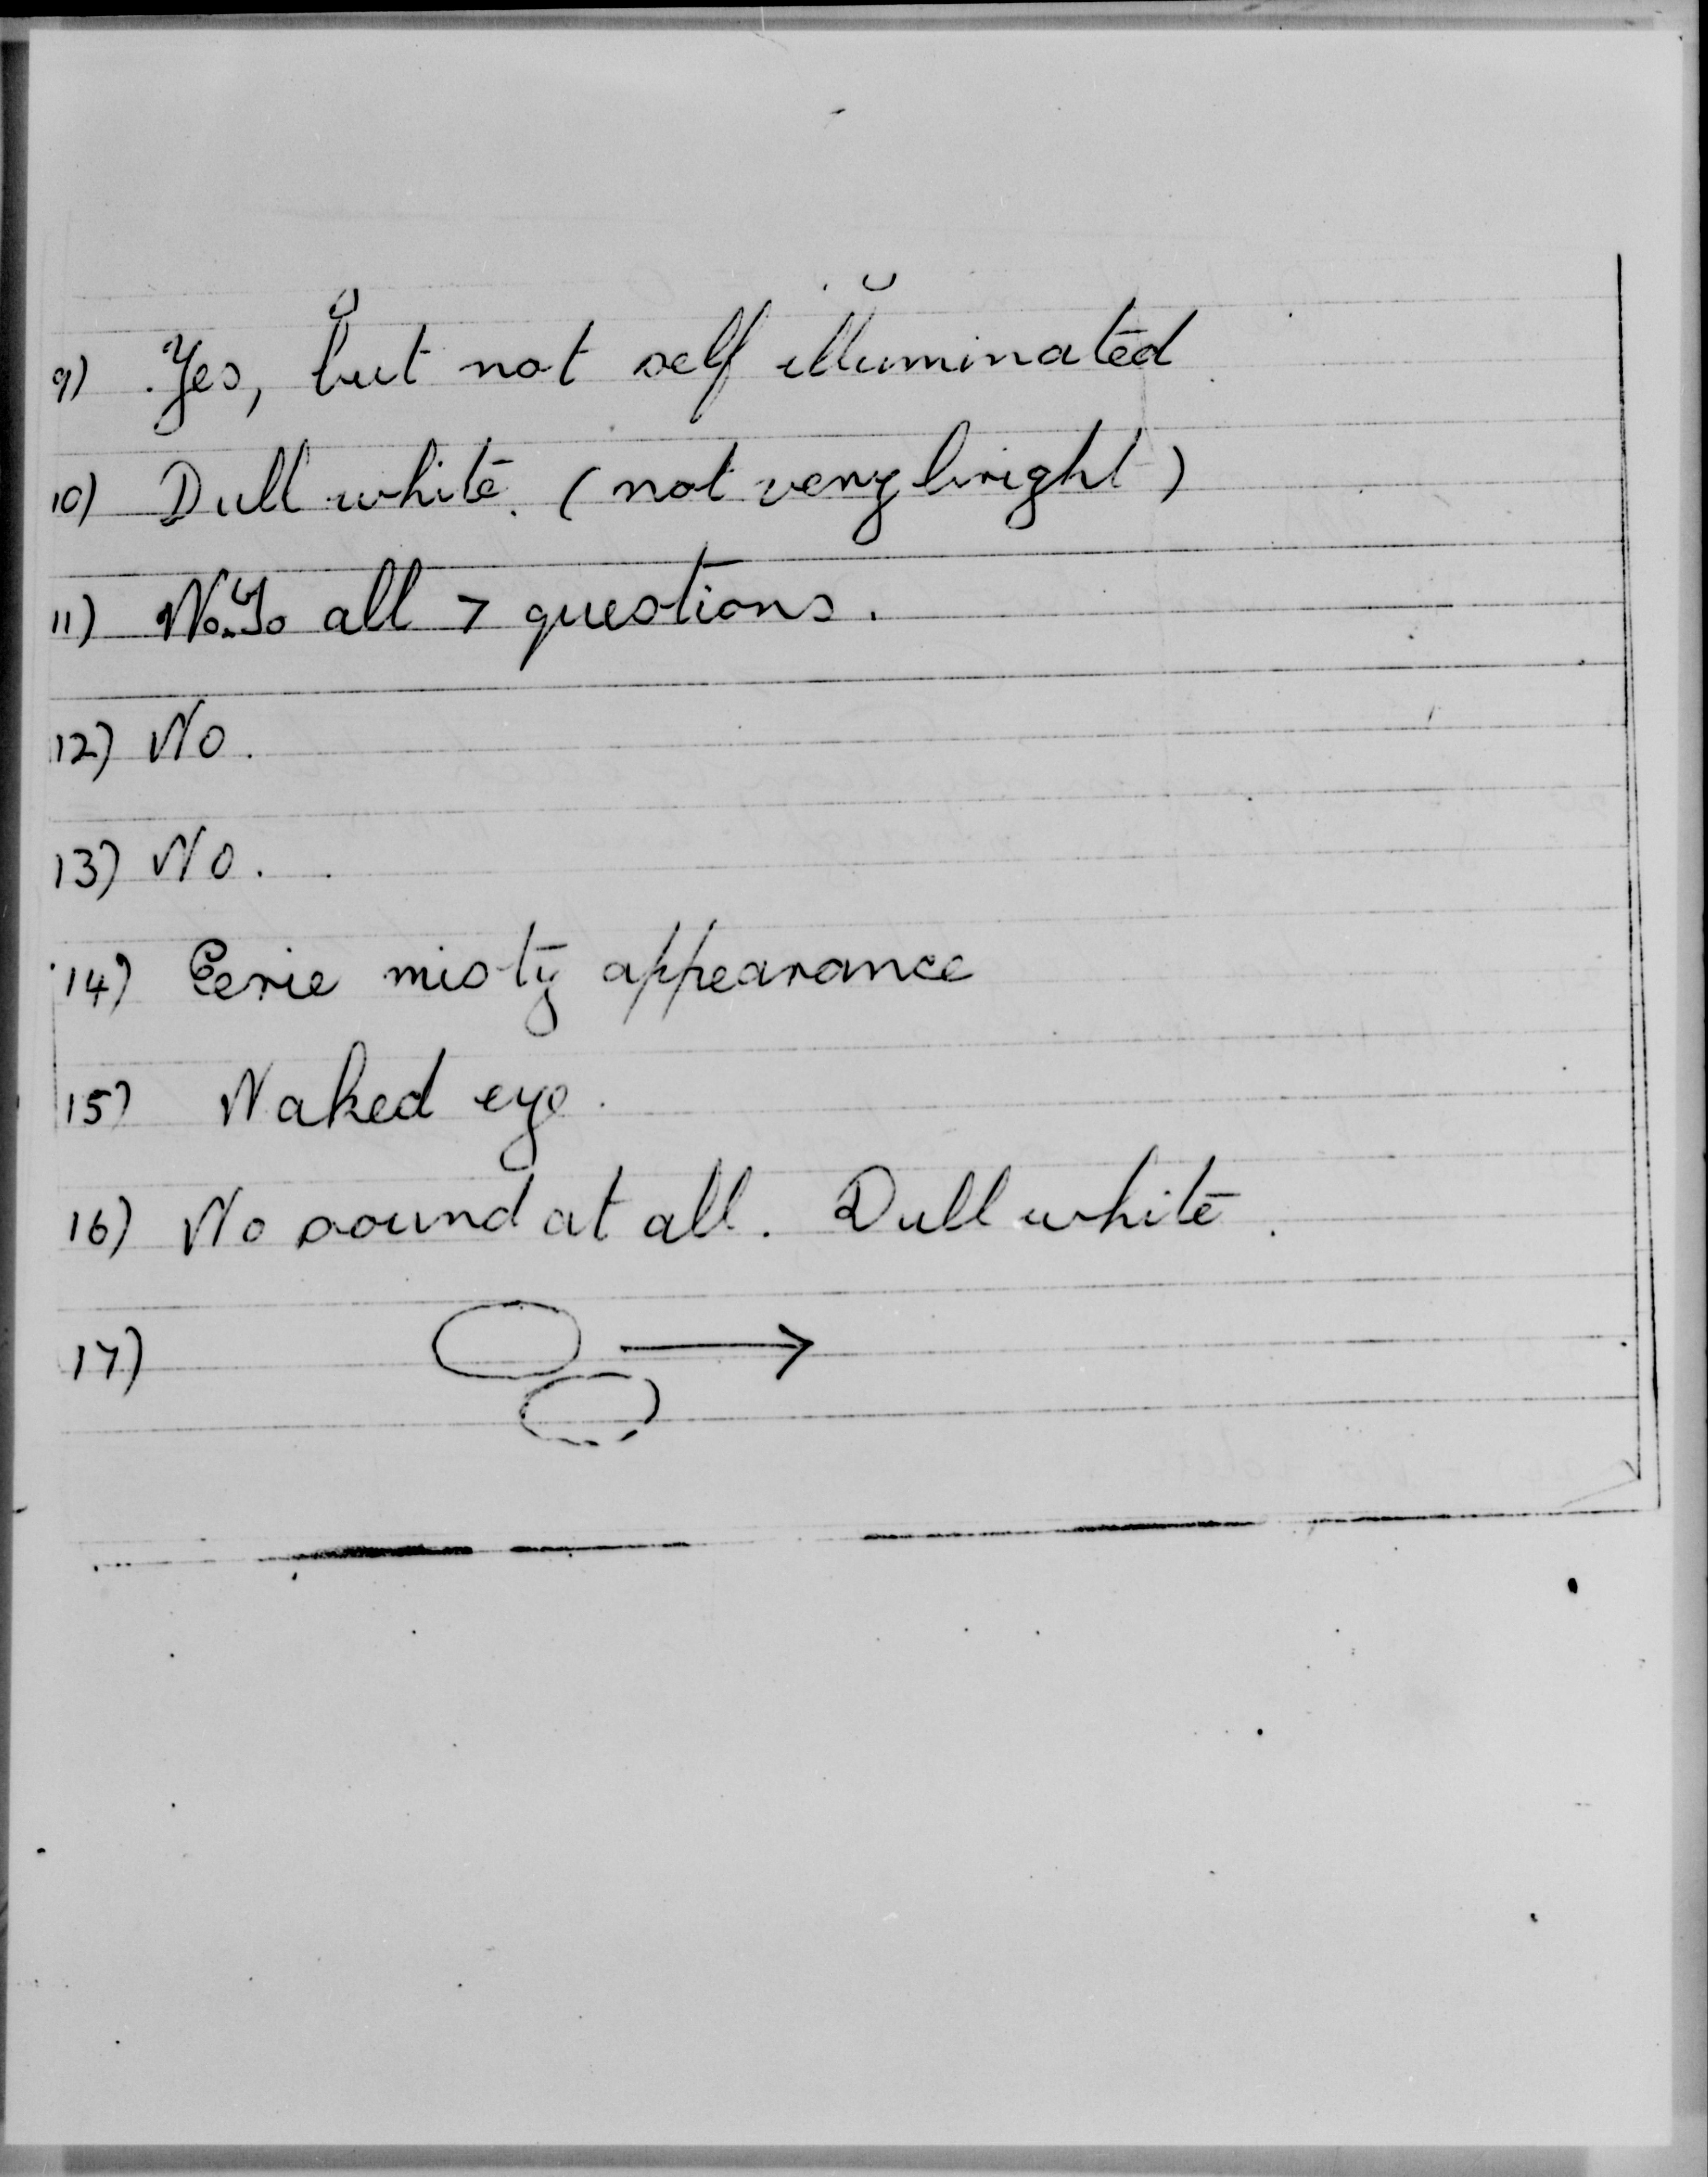 9) Yes, but not self illuminated
10) Dull white. (not very bright)
11) No. To all 7 questions.
12) No.
13) No.
14) Eerie misty appearance
15) Naked eye.
16) No sound at all. Dull white.
17)